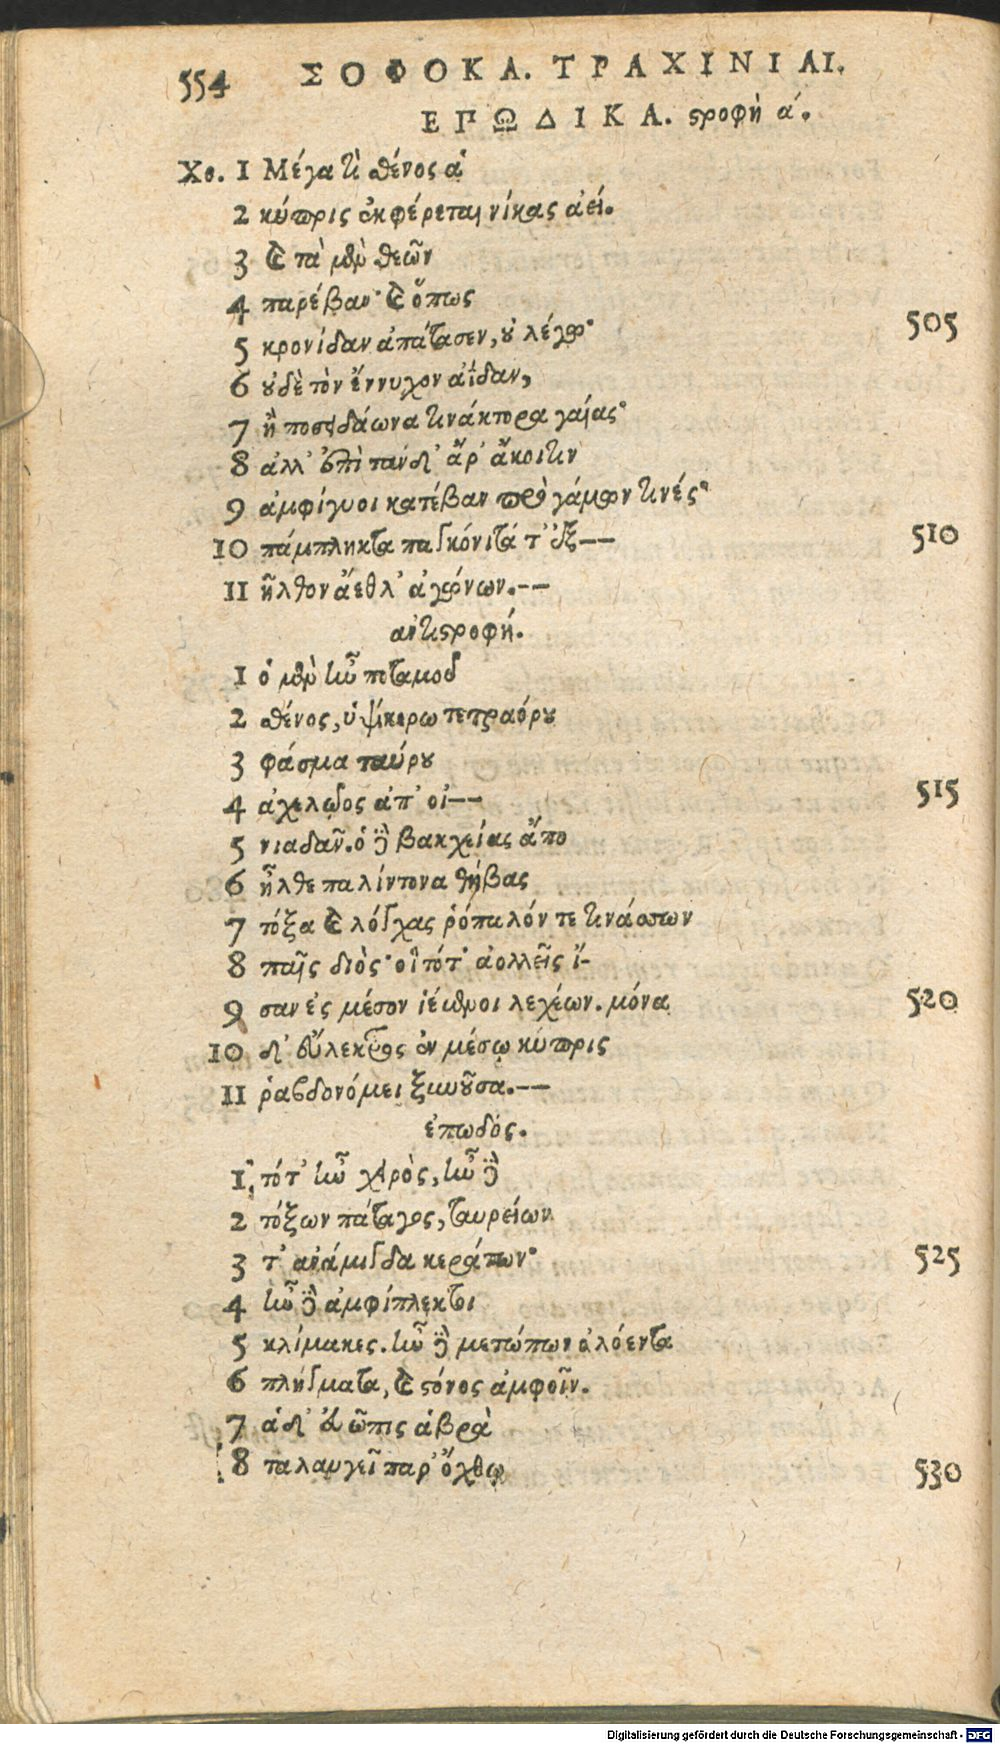 554 ΣΟΦΟΚΛ. ΤΡΑΧΙΝΙΑΙ.
ΕΠΩΔΙΚΑ. στροφὴ ά.
Χο. 1 Μέγα τὶ σθένος ἁ
2 κύπρις ἐκφέρεται νίκας ἀεί.
3 καὶ τὰ μὲν θεῶν
4 παρέβαν· καὶ ὅπως
505
5 κρονίδαν ἀπάτασεν, οὐ λέγω·
6 οὐδὲ τὸν ἔννυχον αἵδαν,
7 ἢ ποσειδάωνα τινάκτορα γαίας·
8 ἀλλ' ἐπὶ τάνδ' ἄρ' ἄκοιτιν
9 ἀμφίγυοι κατέβαν πρὸ γάμων τινές·
10 πάμπληκτα παγκόνιτά τ' ἐξ--
510
11 ῆλθον ἄεθλ' ἀγώνων.--
ἀντιστροφή.
1 ὁ μὲν ἦν ποταμοῦ
2 σθένος, ὑψίκερω τετραόρου
3 φάσμα ταύρου
4 ἀχελῷος ἀπ' οἰ--
515
5 νιαδᾶν. ὁ δὲ βακχείας ἄπο
6 ἦλθε παλίντονα θήβας
7 τόξα καὶ λόγχας ῥόπαλόν τε τινάσσων
8 παῖς διὸς· οἳ τότ' ἀολλεῖς ἴ-
9 σαν ἐς μέσον ἱέμενοι λεχέων. μόνα
520
10 δ' εὔλεκτρος ἐν μέσῳ κύπρις
11 ῥαβδονόμει ξυνοῦσα.--
ἐπωδός.
1 τότ' ἦν χερὸς, ἦν δὲ
2 τόξων πάταγος, ταυρείων
3 τ' ἀνάμιγδα κεράτων·
525
4 ἦν δὲ ἀμφίπλεκτοι
5 κλίμακες. ἦν δὲ μετώπων ὀλόεντα
6 πλήγματα, καὶ στόνος ἀμφοῖν.
7 ἁ δ' εὐῶπις ἁβρὰ
8 τηλαυγεῖ παρ' ὄχθῳ
530
Digitalisierung gefördert durch die Deutsche Forschungsgemeinschaft - DFG